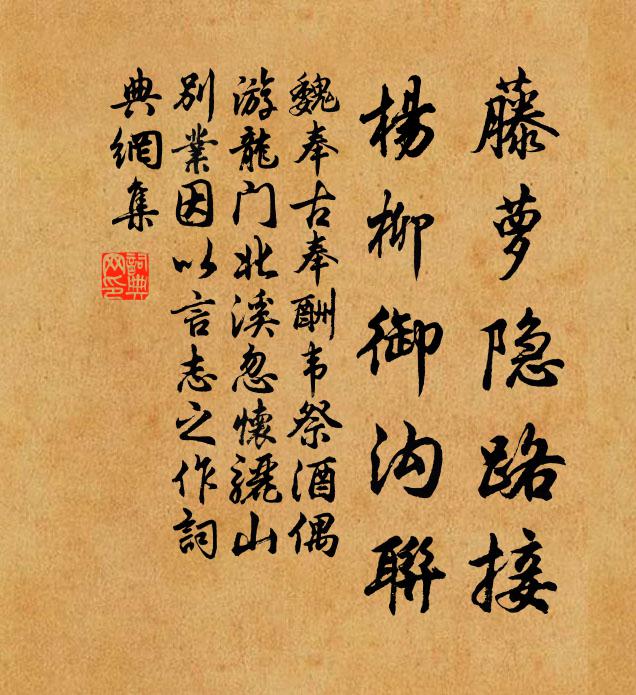 藤萝隐路接
杨柳御沟联
魏奉古奉酬韦祭酒偶
游龙门北溪忽怀骊山
别业因以言志之作词
典网集
词典网印